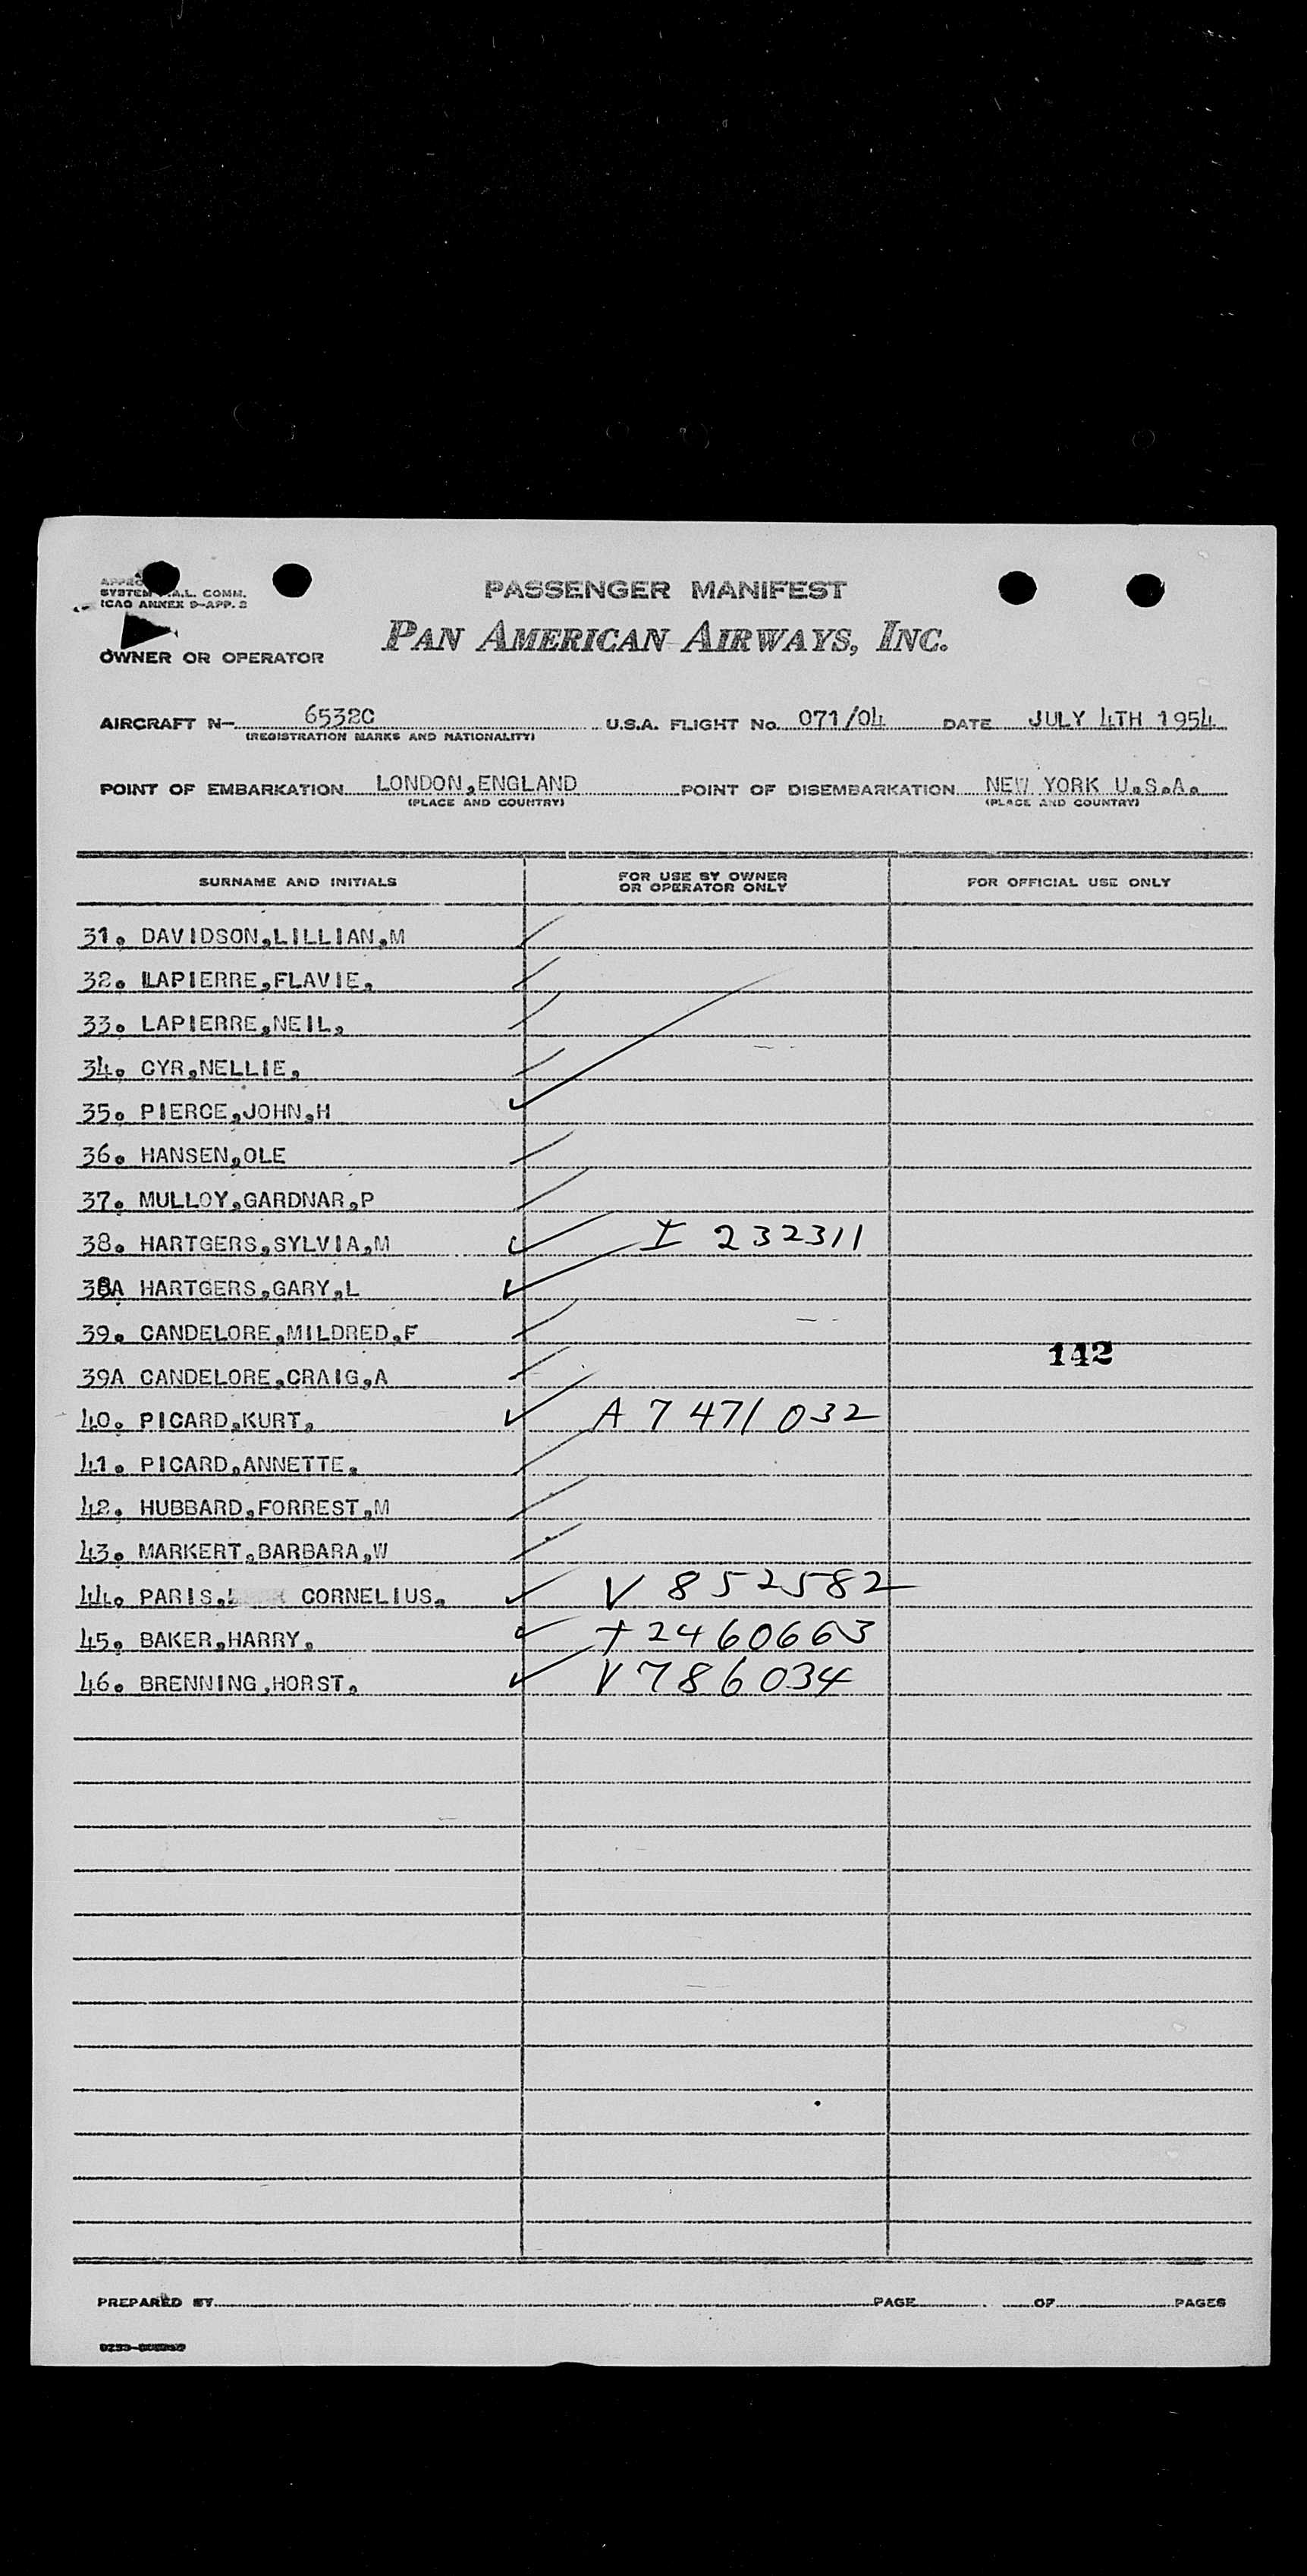 PASSENGER MANIFEST
SYSTEM COMM.
ICAO ANNEX 9-APP. 2
PAN AMERICAN AIRWAYS, INC.
OWNER OR OPERATOR
AIRCRAFT N- 6532C U.S.A. FLIGHT No. 071/04 DATE JULY 4TH 1954
(REGISTRATION MARKS AND NATIONALITY)
POINT OF EMBARKATION LONDON,ENGLAND POINT OF DISEMBARKATION NEW YORK U.S.A.
(PLACE AND COUNTRY) (PLACE AND COUNTRY)
SURNAME AND INITIALS FOR USE BY OWNER OR OPERATOR ONLY FOR OFFICIAL USE ONLY
31. DAVIDSON,LILLIAN,M
32. LAPIERRE,FLAVIE,
33. LAPIERRE,NEIL,
34. CYR,NELLIE,
35. PIERCE,JOHN,H
36. HANSEN,OLE
37. MULLOY,GARDNAR,P
38. HARTGERS,SYLVIA,M I 232311
38A HARTGERS,GARY,L
39. CANDELORE,MILDRED,F
142
39A CANDELORE,CRAIG,A
40. PICARD,KURT, A 7 471 032
41. PICARD,ANNETTE.
42. HUBBARD,FORREST,M
43. MARKERT,BARBARA,W
44. PARIS, CORNELIUS. V 852582
45. BAKER,HARRY. 2460663
46. BRENNING,HORST. V 786034
PREPARED BY PAGE OF PAGES